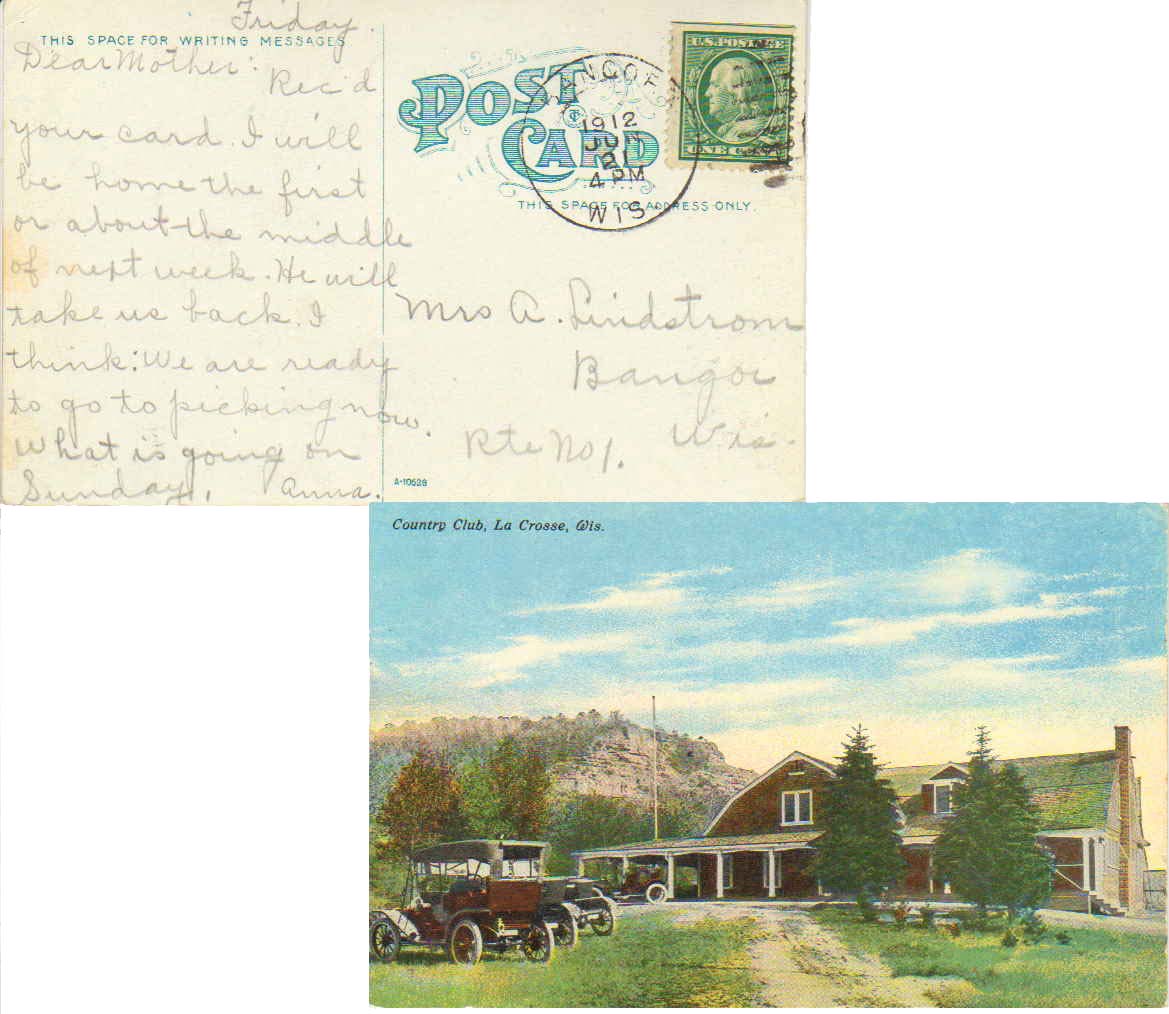 Friday.
THIS SPACE FOR WRITING MESSAGES
Dear Mother:
Rec'd
your card. I will
be home the first
or about the middle
of next week. He will
take us back. I
think: We are ready
to go to picking now.
What is going on
Sunday, Anna.
POST
CARD
1912
JUN
21
4 PM
WIS.
U.S. POSTAGE
ONE CENT
THIS SPACE FOR ADDRESS ONLY.
Mrs A. Lindstrom
Bangor
Wis.
Rte No 1.
A-10528
Country Club, La Crosse, Wis.